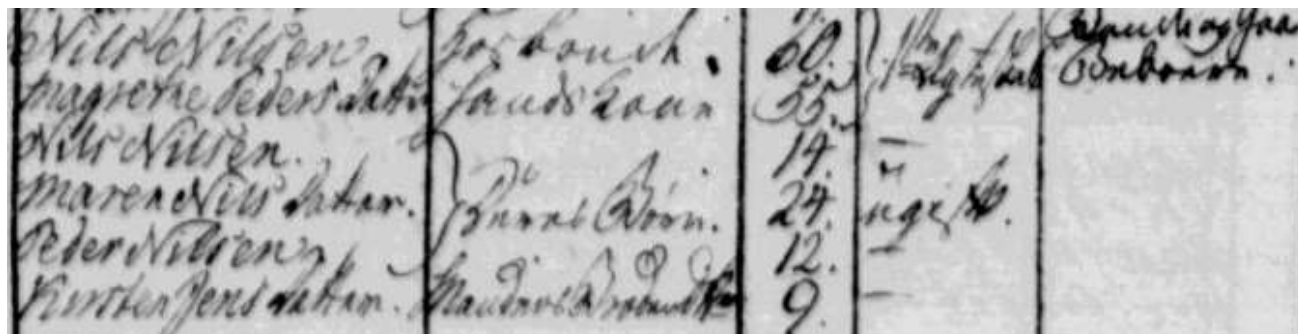 Nils Nilsen Hosbonde. 60. 1ste Bonde og Gaard
Magrethe Peders Datter Hands Kone 55. Beboere.
Nils Nilsen. 14. —
Maren Nils Datter. Deres Börn. 24. ugift.
Peder Nilsen 12. —
Kirsten Jens Datter. Mandens Broder 9. —